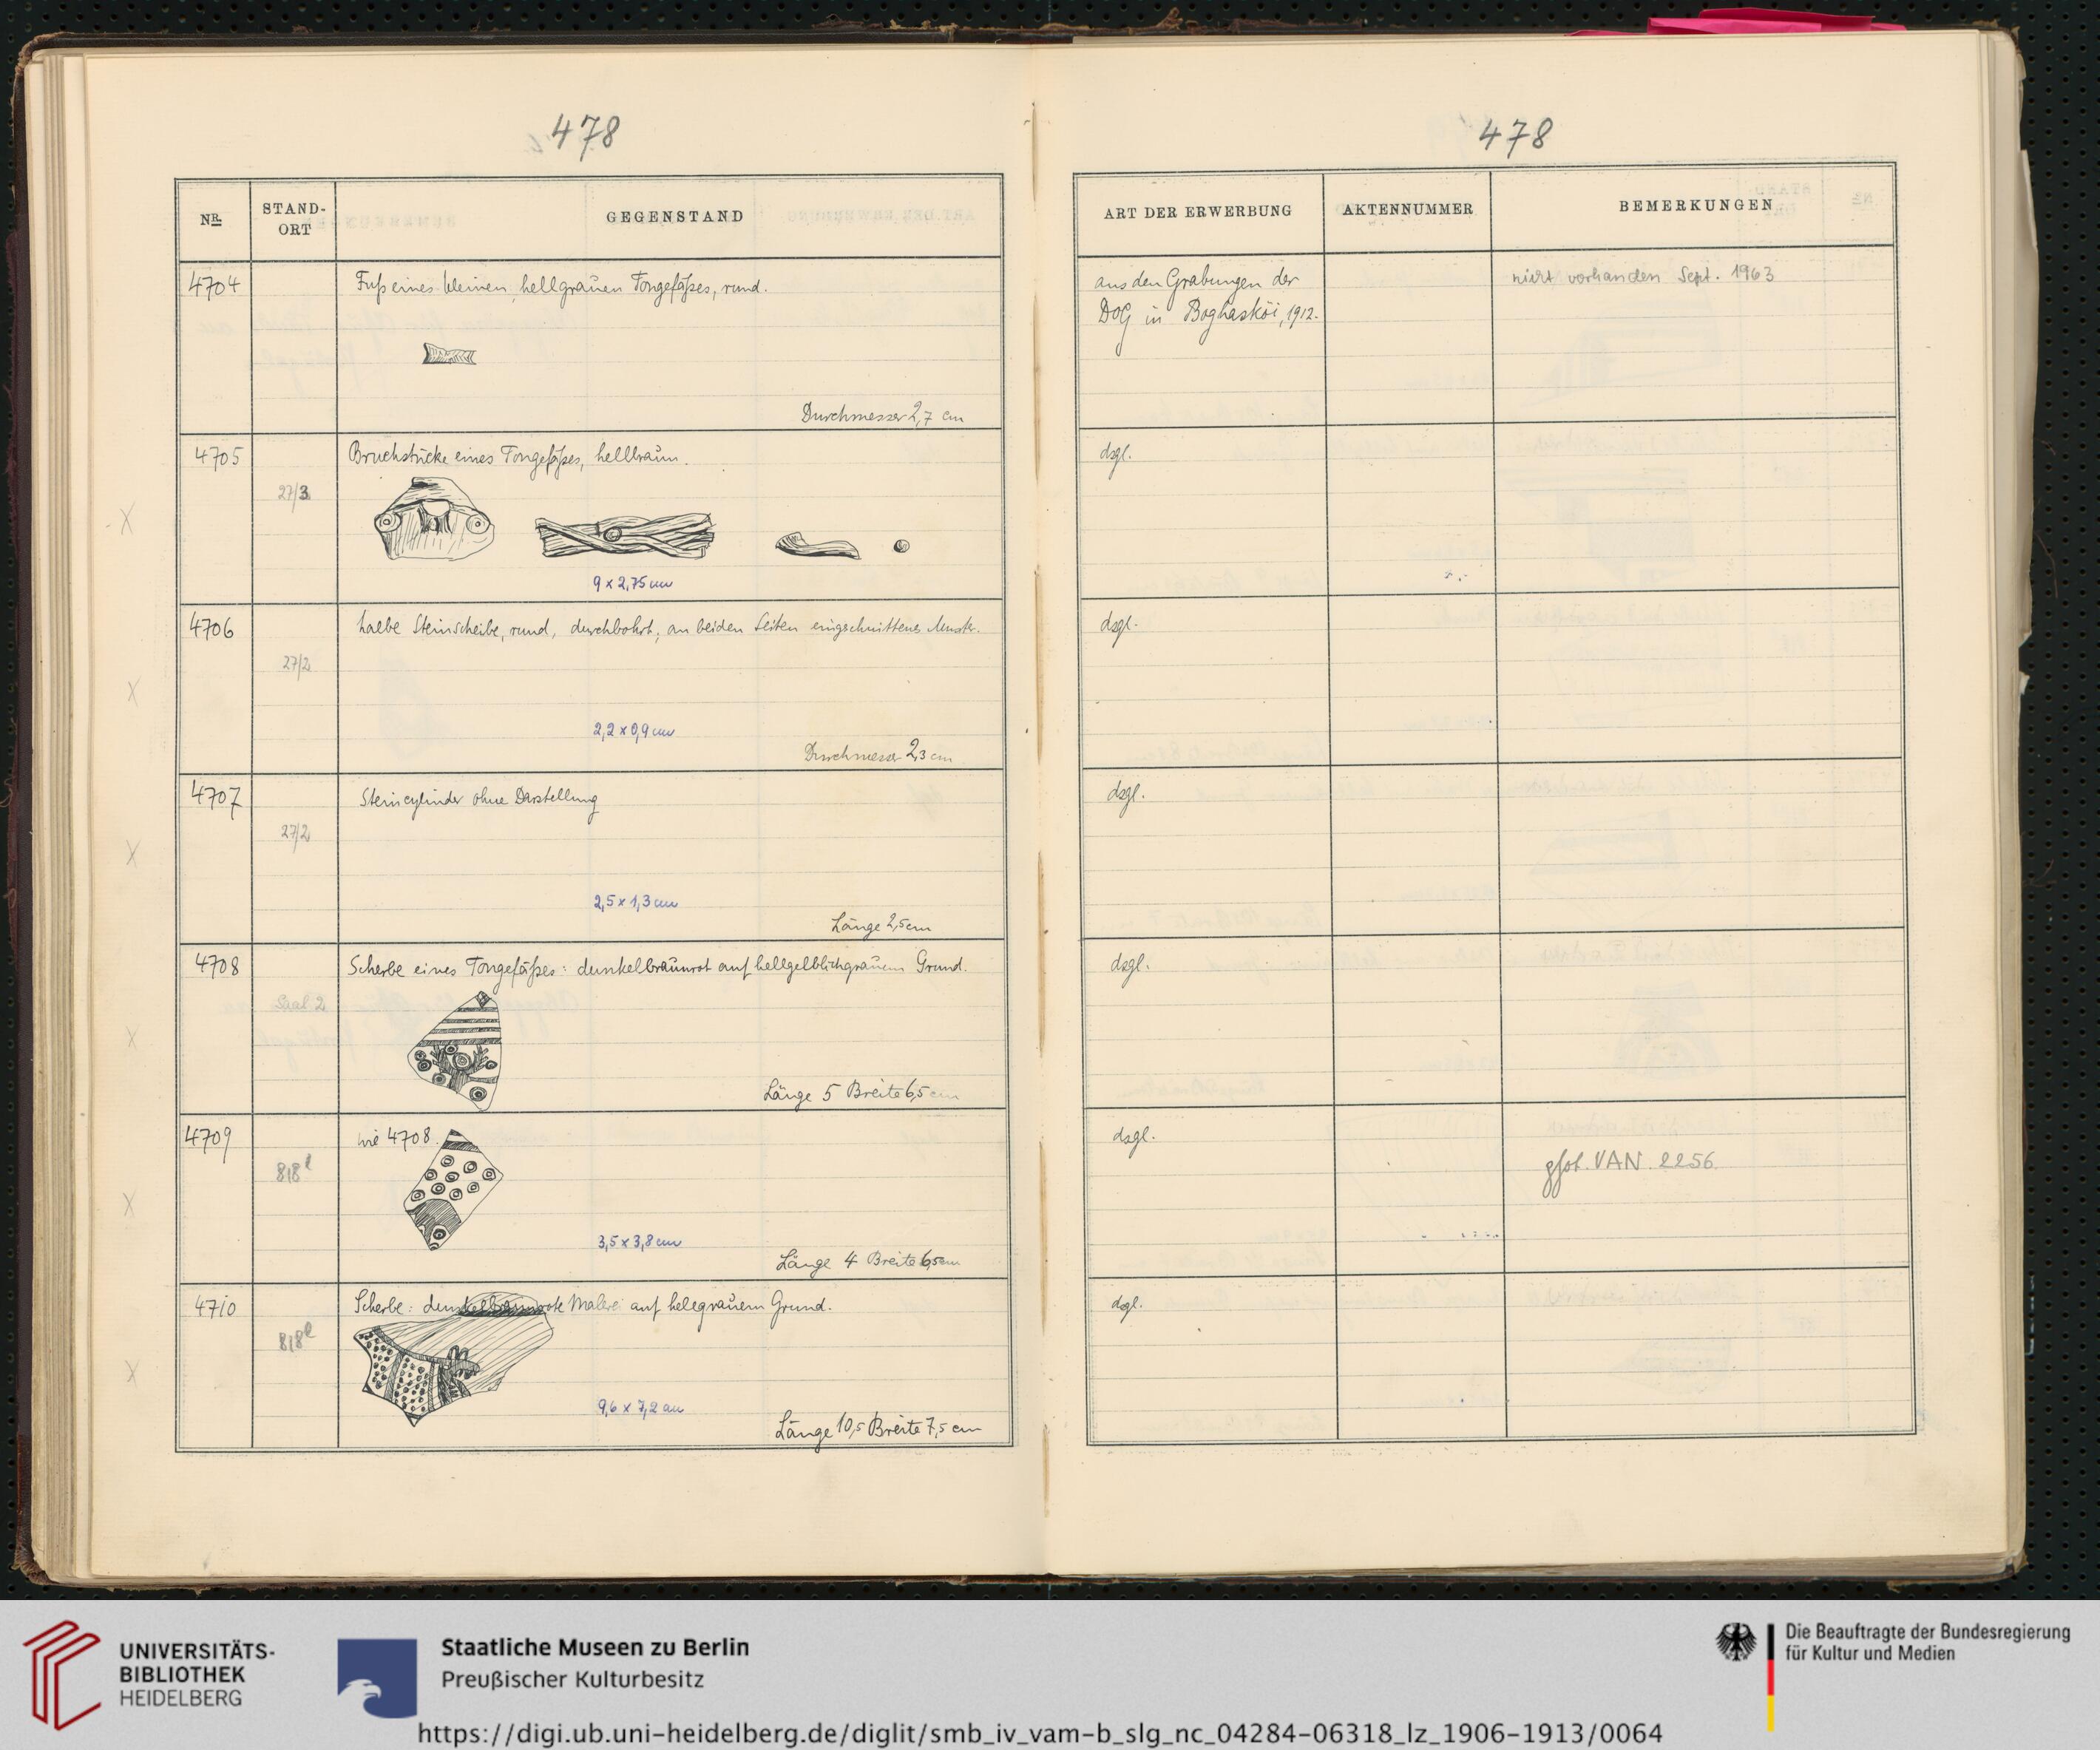 478
NR.
STAND-
ORT
GEGENSTAND
4704
Fuß eines kleinen, hellgrauen Tongefäßes, rund.
Durchmesser 2,7 cm
4705
27/3
Bruchstücke eines Tongefäßes, hellbraun.
9 x 2,75 cm
4706
27/2
halbe Steinscheibe, rund, durchbohrt, an beiden Seiten eingeschnittenes Muster.
2,2 x 0,9 cm
Durchmesser 2,3 cm
4707
27/2
Steincylinder ohne Darstellung
2,5 x 1,3 cm
Länge 2,5 cm
4708
Saal 2
Scherbe eines Tongefäßes: dunkelbraunrot auf hellgelblichgrauem Grund.
Länge 5 Breite 6,5 cm
4709
wie 4708.
3,5 x 3,8 cm
Länge 4 Breite 6,5 cm
4710
Scherbe: dunkelbraunrote Malerei auf hellgrauem Grund.
9,6 x 7,2 cm
Länge 10,5 Breite 7,5 cm
478
ART DER ERWERBUNG
AKTENNUMMER
BEMERKUNGEN
aus den Grabungen der
DOG in Boghasköi, 1912.
nicht vorhanden Sept. 1963
dsgl.
dsgl.
dsgl.
dsgl.
dsgl.
VAN 2256
dsgl.
UNIVERSITÄTS-
BIBLIOTHEK
HEIDELBERG
Staatliche Museen zu Berlin
Preußischer Kulturbesitz
Die Beauftragte der Bundesregierung
für Kultur und Medien
https://digi.ub.uni-heidelberg.de/diglit/smb_iv_vam-b_slg_nc_04284-06318_lz_1906-1913/0064